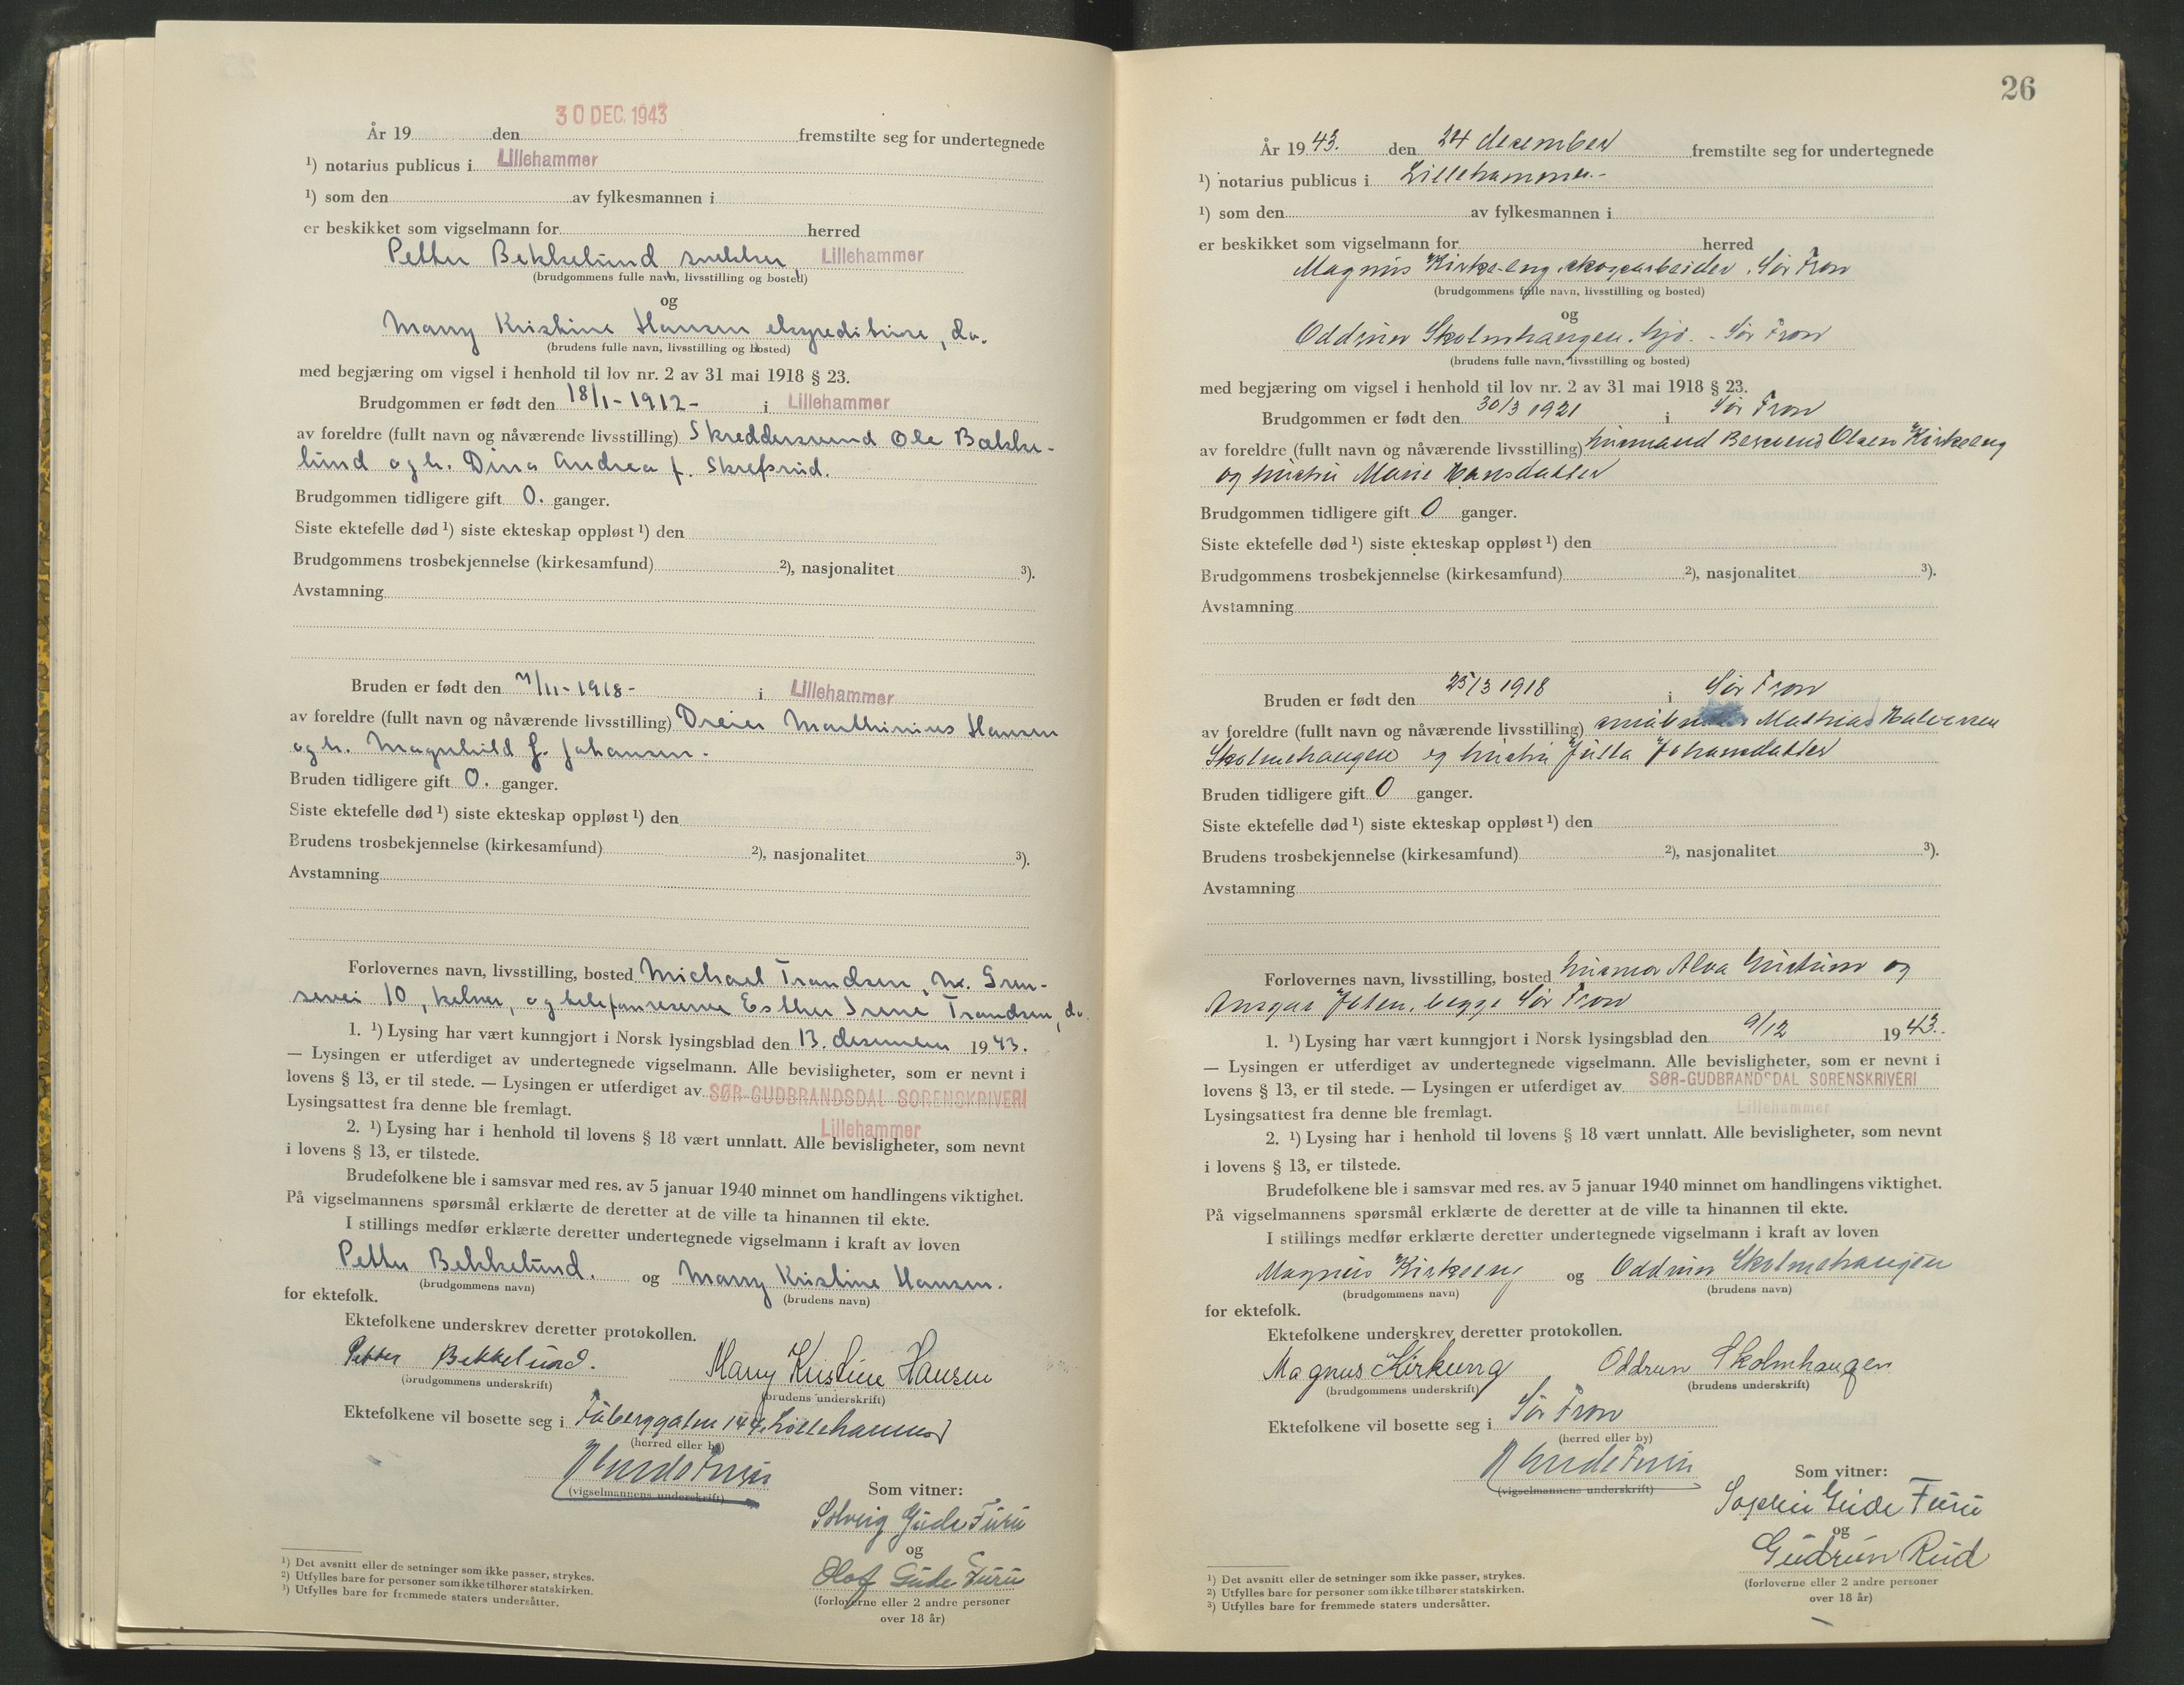 30 DEC. 1943
År 19 den fremstilte seg for undertegnede
¹) notarius publicus i Lillehammer
¹) som den av fylkesmannen i
er beskikket som vigselmann for herred
Petter Bekkelund snekker, Lillehammer
(brudgommens fulle navn, livsstilling og bosted)
og
Marry Kristine Hansen ekspeditrise, do.
(brudens fulle navn, livsstilling og bosted)
med begjæring om vigsel i henhold til lov nr. 2 av 31 mai 1918 § 23.
Brudgommen er født den 18/1-1912- i Lillehammer
av foreldre (fullt navn og nåværende livsstilling) Skreddersvend Ole Bække-
lund og h. Dina Andrea f. Skrefsrud.
Brudgommen tidligere gift 0. ganger.
Siste ektefelle død ¹) siste ekteskap oppløst ¹) den
Brudgommens trosbekjennelse (kirkesamfund) ²), nasjonalitet ³).
Avstamning
Bruden er født den /11-1918- i Lillehammer
av foreldre (fullt navn og nåværende livsstilling) Dreier Marthinius Hansen
og h. Magnhild f. Johansen.
Bruden tidligere gift 0. ganger.
Siste ektefelle død ¹) siste ekteskap oppløst ¹) den
Brudens trosbekjennelse (kirkesamfund) ²), nasjonalitet ³).
Avstamning
Forlovernes navn, livsstilling, bosted Michael Trandsen,
10, kelner, og Esther Irene Trandsen, do.
1. ¹) Lysing har vært kunngjort i Norsk lysingsblad den 13. desember 1943.
— Lysingen er utferdiget av undertegnede vigselmann. Alle bevisligheter, som er nevnt i
lovens § 13, er til stede. — Lysingen er utferdiget av SØR-GUDBRANDSDAL SORENSKRIVERI
Lysingsattest fra denne ble fremlagt.
Lillehammer
2. ¹) Lysing har i henhold til lovens § 18 vært unnlatt. Alle bevisligheter, som nevnt
i lovens § 13, er tilstede.
Brudefolkene ble i samsvar med res. av 5 januar 1940 minnet om handlingens viktighet.
På vigselmannens spørsmål erklærte de deretter at de ville ta hinannen til ekte.
I stillings medfør erklærte deretter undertegnede vigselmann i kraft av loven
Petter Bekkelund. og Marry Kristine Hansen.
(brudgommens navn) (brudens navn)
for ektefolk.
Ektefolkene underskrev deretter protokollen.
Petter Bekkelund. Marry Kristine Hansen
(brudgommens underskrift) (brudens underskrift)
Ektefolkene vil bosette seg i Fåberggaten 144, Lillehammer
(herred eller by)
(vigselmannens underskrift)
Som vitner:
Solveig Gude Furu
og
Olof Gude Furu
(forloverne eller 2 andre personer
over 18 år)
¹) Det avsnitt eller de setninger som ikke passer, strykes.
²) Utfylles bare for personer som ikke tilhører statskirken.
³) Utfylles bare for fremmede staters undersåtter.
26
År 1943. den 24 desember fremstilte seg for undertegnede
¹) notarius publicus i Lillehammer.-
¹) som den av fylkesmannen i
er beskikket som vigselmann for herred
Magnus Kirkeeng, skogsarbeider, Sør Fron
(brudgommens fulle navn, livsstilling og bosted)
og
Oddrun Skolmhaugen, - Sør Fron
(brudens fulle navn, livsstilling og bosted)
med begjæring om vigsel i henhold til lov nr. 2 av 31 mai 1918 § 23.
Brudgommen er født den 30/3 1921 i Sør Fron
av foreldre (fullt navn og nåværende livsstilling) Olsen Kirkeeng
og hustru Marie Hansdatter
Brudgommen tidligere gift 0 ganger.
Siste ektefelle død ¹) siste ekteskap oppløst ¹) den
Brudgommens trosbekjennelse (kirkesamfund) ²), nasjonalitet ³).
Avstamning
Bruden er født den 25/3 1918 i Sør Fron
av foreldre (fullt navn og nåværende livsstilling) Mathias Halvorsen
Skolmehaugen og hustru Julla Johansdatter
Bruden tidligere gift 0 ganger.
Siste ektefelle død ¹) siste ekteskap oppløst ¹) den
Brudens trosbekjennelse (kirkesamfund) ²), nasjonalitet ³).
Avstamning
Forlovernes navn, livsstilling, bosted Alva og
Ansgar begge Sør Fron
1. ¹) Lysing har vært kunngjort i Norsk lysingsblad den 9/12 1943.
— Lysingen er utferdiget av undertegnede vigselmann. Alle bevisligheter, som er nevnt i
lovens § 13, er til stede. — Lysingen er utferdiget av SØR-GUDBRANDSDAL SORENSKRIVERI
Lysingsattest fra denne ble fremlagt. Lillehammer
2. ¹) Lysing har i henhold til lovens § 18 vært unnlatt. Alle bevisligheter, som nevnt
i lovens § 13, er tilstede.
Brudefolkene ble i samsvar med res. av 5 januar 1940 minnet om handlingens viktighet.
På vigselmannens spørsmål erklærte de deretter at de ville ta hinannen til ekte.
I stillings medfør erklærte deretter undertegnede vigselmann i kraft av loven
Magnus Kirkeeng og Oddrun Skolmehaugen
(brudgommens navn) (brudens navn)
for ektefolk.
Ektefolkene underskrev deretter protokollen.
Magnus Kirkeeng Oddrun Skolmhaugen
(brudgommens underskrift) (brudens underskrift)
Ektefolkene vil bosette seg i Sør Fron
(herred eller by)
(vigselmannens underskrift)
Som vitner:
Sophie Gude Furu
og
Gudrun Rud
(forloverne eller 2 andre personer
over 18 år)
¹) Det avsnitt eller de setninger som ikke passer, strykes.
²) Utfylles bare for personer som ikke tilhører statskirken.
³) Utfylles bare for fremmede staters undersåtter.